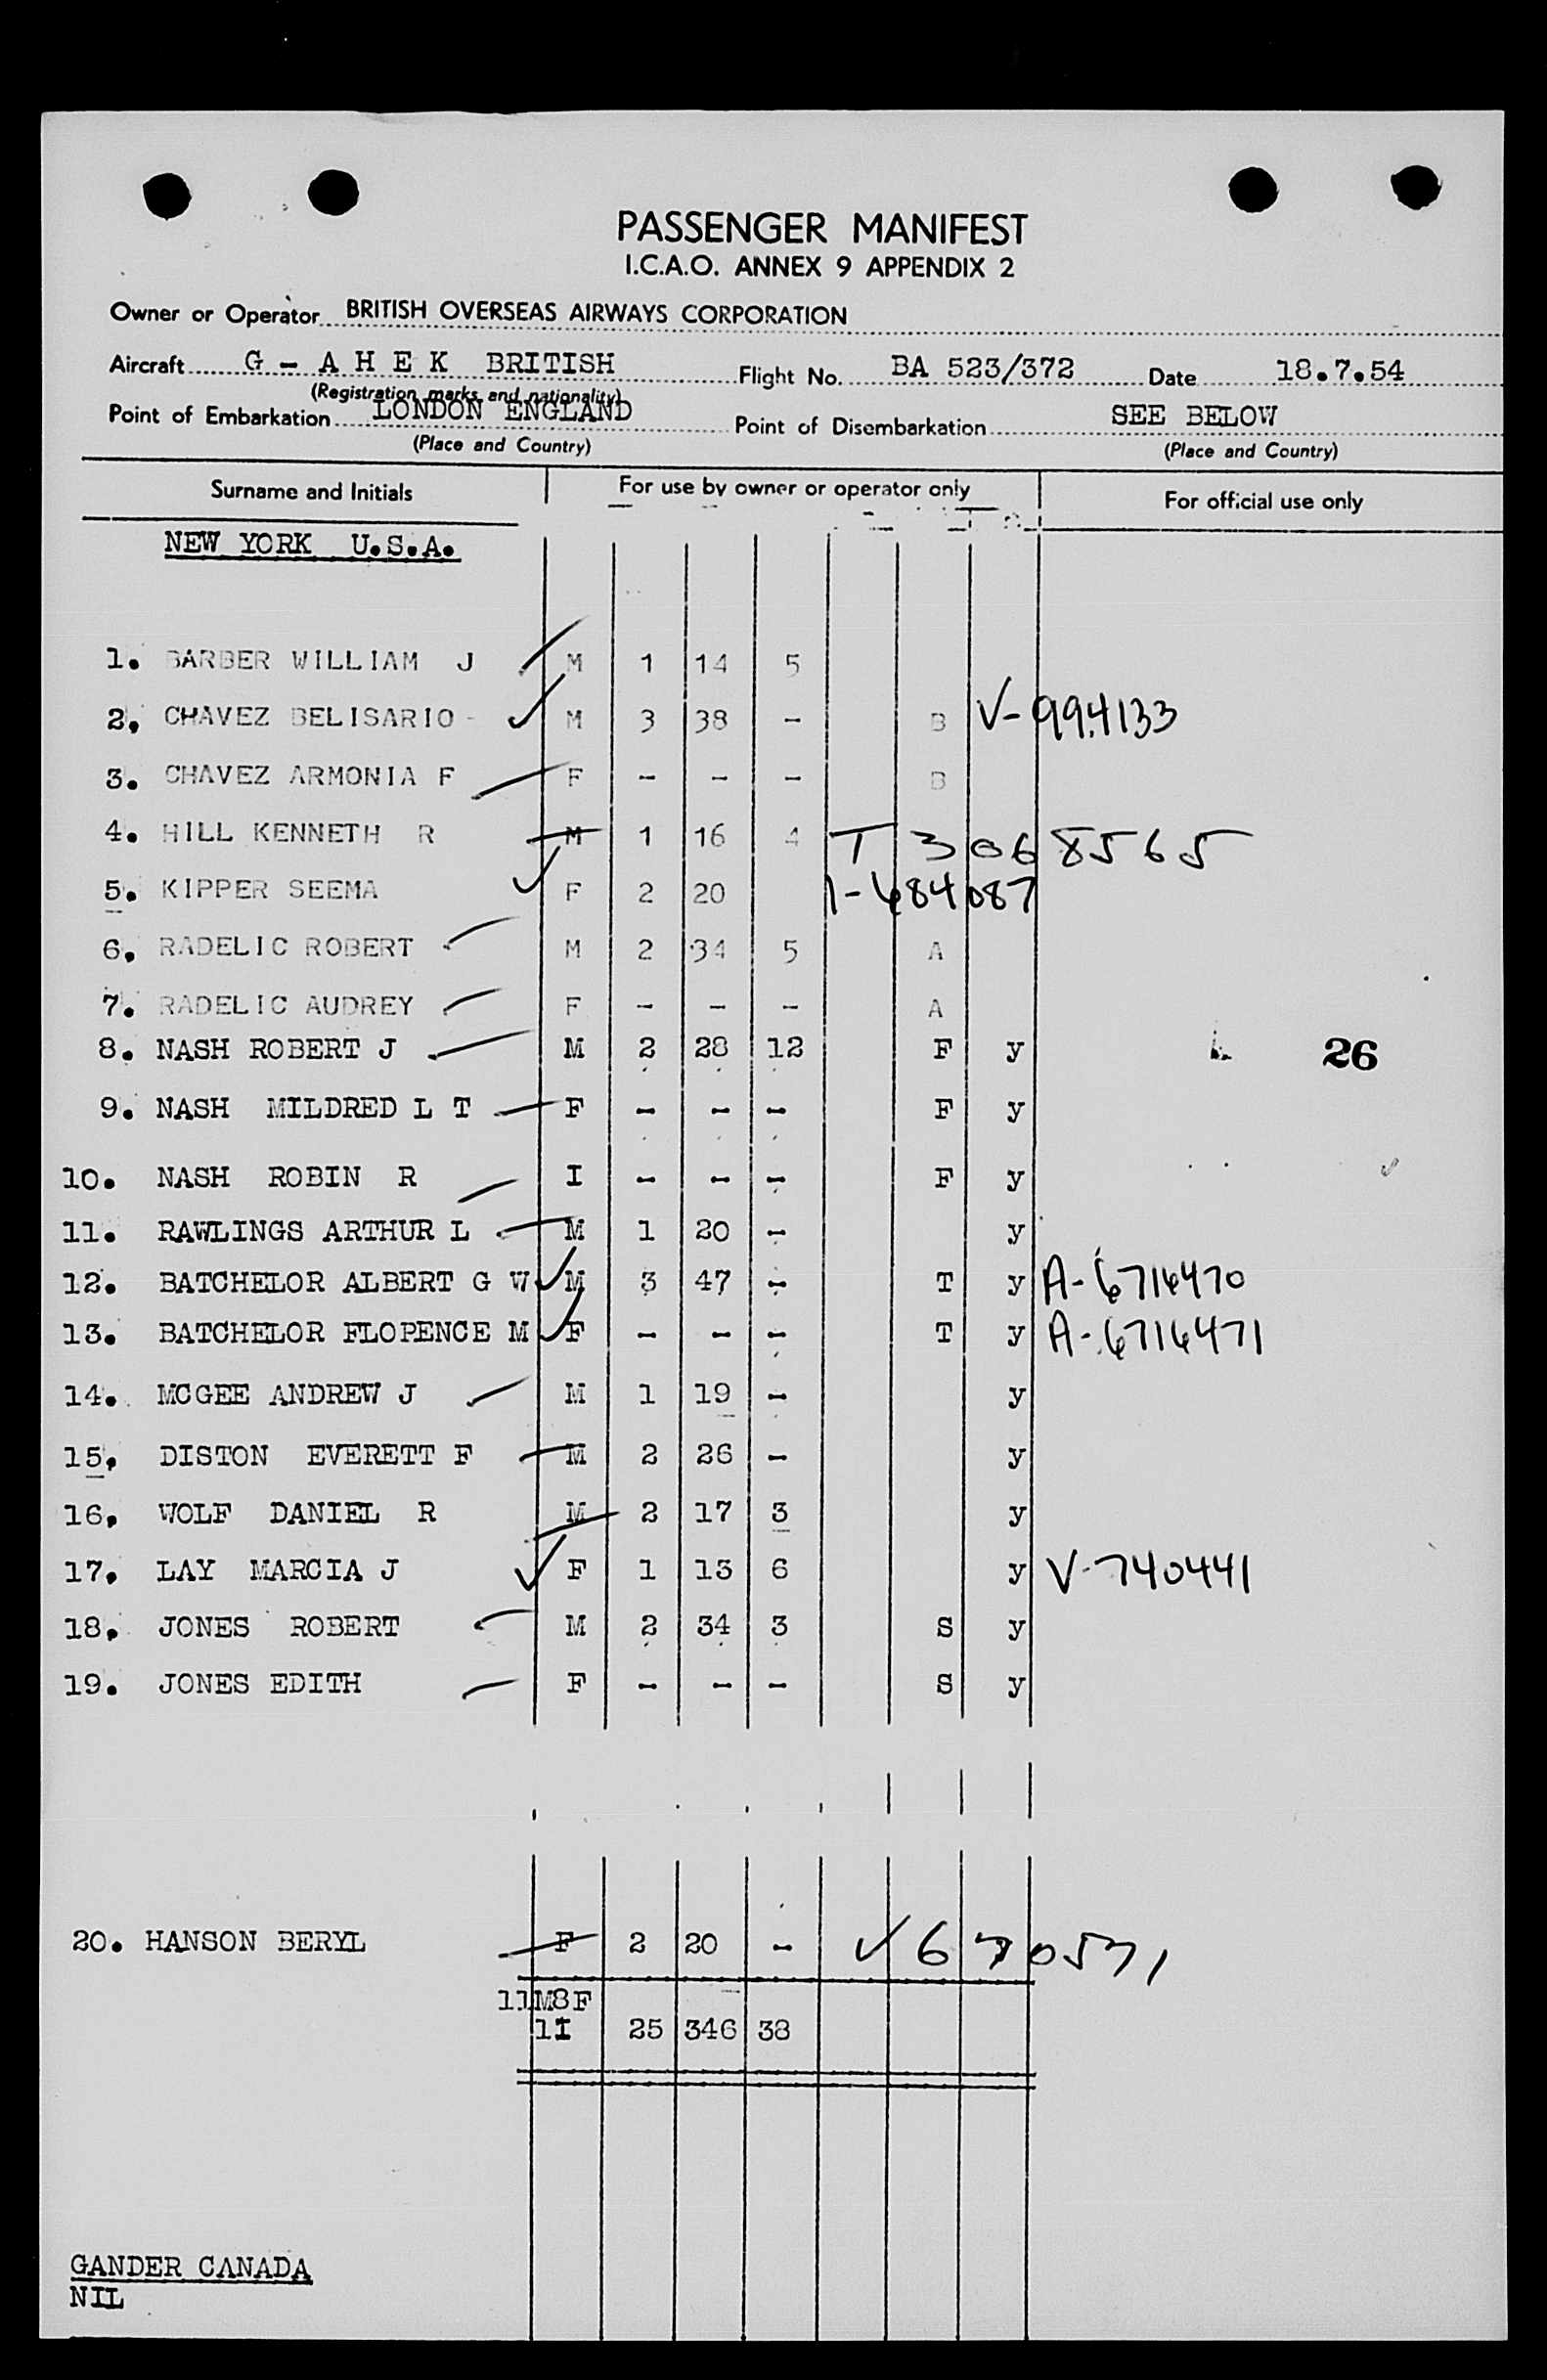 PASSENGER MANIFEST
I.C.A.O. ANNEX 9 APPENDIX 2
Owner or Operator BRITISH OVERSEAS AIRWAYS CORPORATION
Aircraft G - A H E K BRITISH Flight No. BA 523/372 Date 18.7.54
(Registration marks and nationality)
Point of Embarkation LONDON ENGLAND Point of Disembarkation SEE BELOW
(Place and Country) (Place and Country)
Surname and Initials For use by owner or operator only For official use only
NEW YORK U.S.A.
1. BARBER WILLIAM J M 1 14 5
2. CHAVEZ BELISARIO - M 3 38 - B V-994133
3. CHAVEZ ARMONIA F F - - - B
4. HILL KENNETH R M 1 16 4 T 3068565
5. KIPPER SEEMA F 2 20 1-684087
6. RADELIC ROBERT M 2 34 5 A
7. RADELIC AUDREY F - - - A
8. NASH ROBERT J M 2 28 12 F y 26
9. NASH MILDRED L T F - - - F y
10. NASH ROBIN R I - - - F y
11. RAWLINGS ARTHUR L M 1 20 - y
12. BATCHELOR ALBERT G W M 3 47 - T y A-6716470
13. BATCHELOR FLOPENCE M F - - - T y A-6716471
14. MCGEE ANDREW J M 1 19 - y
15. DISTON EVERETT F M 2 26 - y
16. WOLF DANIEL R M 2 17 3 y
17. LAY MARCIA J F 1 13 6 y V-740441
18. JONES ROBERT M 2 34 3 S y
19. JONES EDITH F - - - S y
20. HANSON BERYL F 2 20 - V 670571
11M8F
1I 25 346 38
GANDER CANADA
NIL